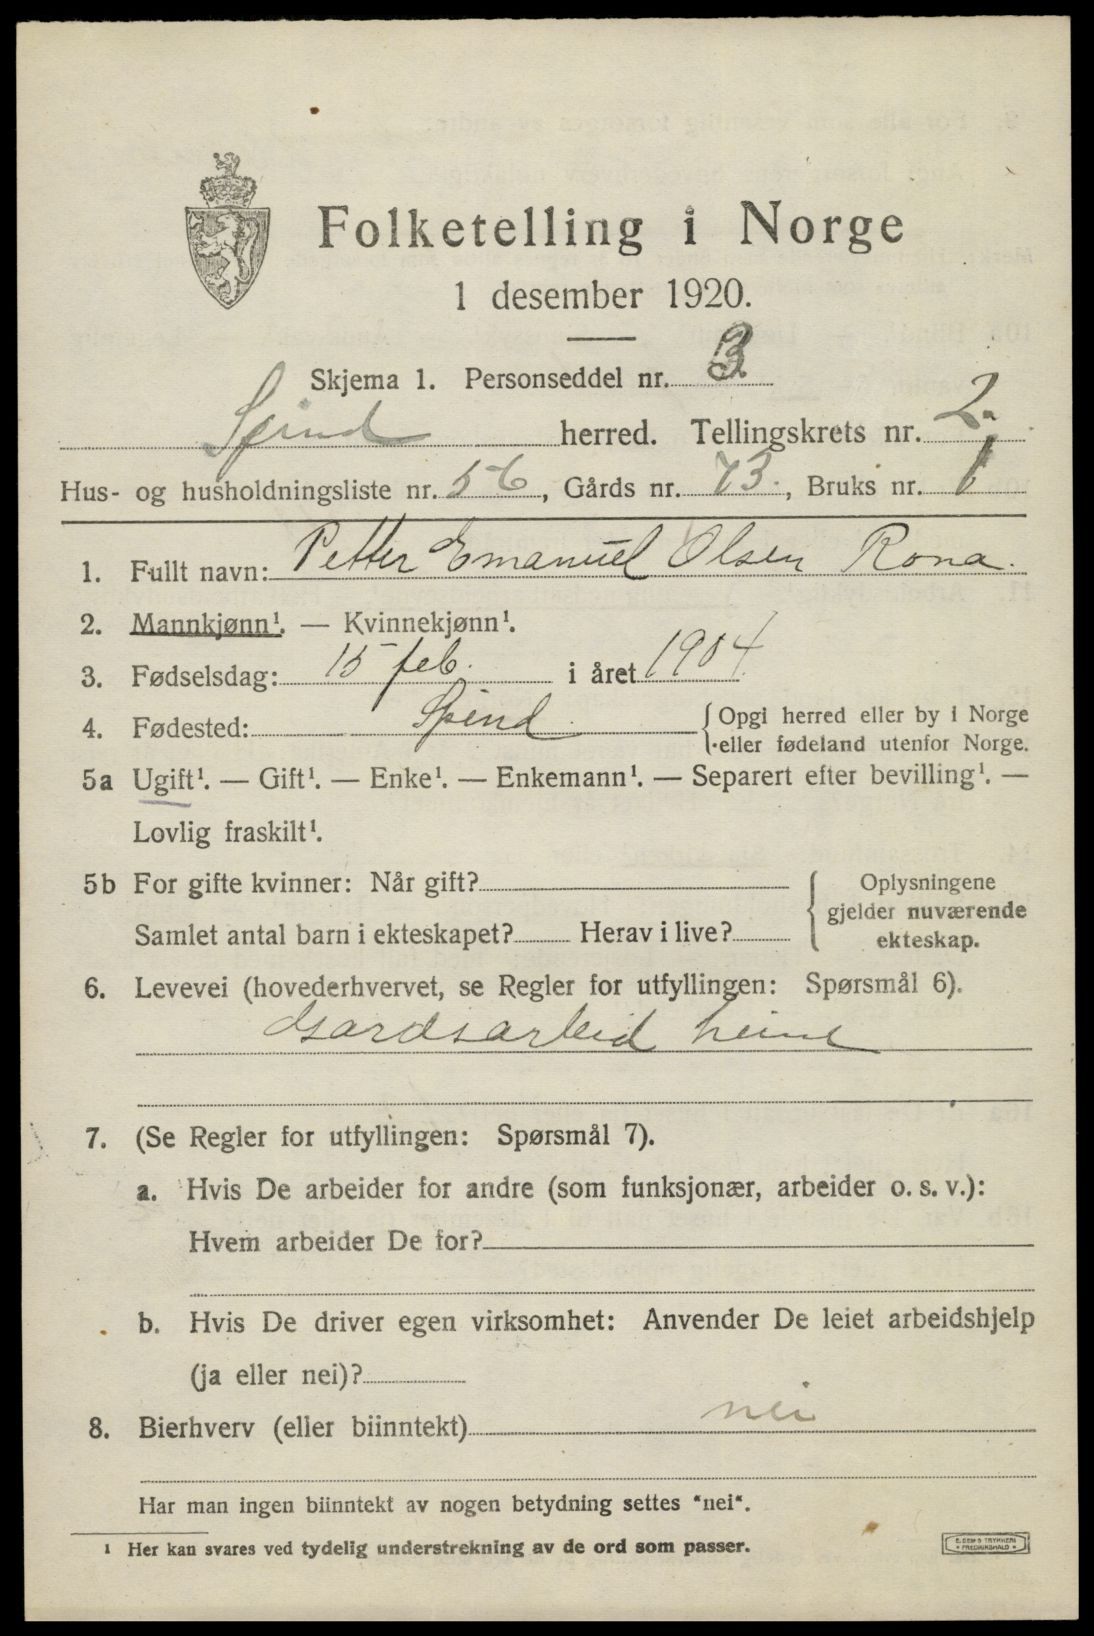 Folketelling i Norge
1 desember 1920.
Skjema 1. Personseddel nr. 3
Spind herred. Tellingskrets nr. 2.
Hus- og husholdningsliste nr. 56, Gårds nr. 73., Bruks nr. 1
1. Fullt navn: Petter Emanuel Olsen Rona.
2. Mannkjønn¹. — Kvinnekjønn¹.
3. Fødselsdag: 15 feb. i året 1904
4. Fødested: Spind {Opgi herred eller by i Norge
eller fødeland utenfor Norge.
5a Ugift¹. — Gift¹. — Enke¹. — Enkemann¹. — Separert efter bevilling¹. —
Lovlig fraskilt¹.
5b For gifte kvinner: Når gift? { Oplysningene
gjelder nuværende
Samlet antal barn i ekteskapet? Herav i live?
ekteskap.
6. Levevei (hovederhvervet, se Regler for utfyllingen: Spørsmål 6).
Gardsarbeid heime
7. (Se Regler for utfyllingen: Spørsmål 7).
a. Hvis De arbeider for andre (som funksjonær, arbeider o. s. v.):
Hvem arbeider De for?
b. Hvis De driver egen virksomhet: Anvender De leiet arbeidshjelp
(ja eller nei)?
8. Bierhverv (eller biinntekt) nei
Har man ingen biinntekt av nogen betydning settes "nei".
¹ Her kan svares ved tydelig understrekning av de ord som passer.